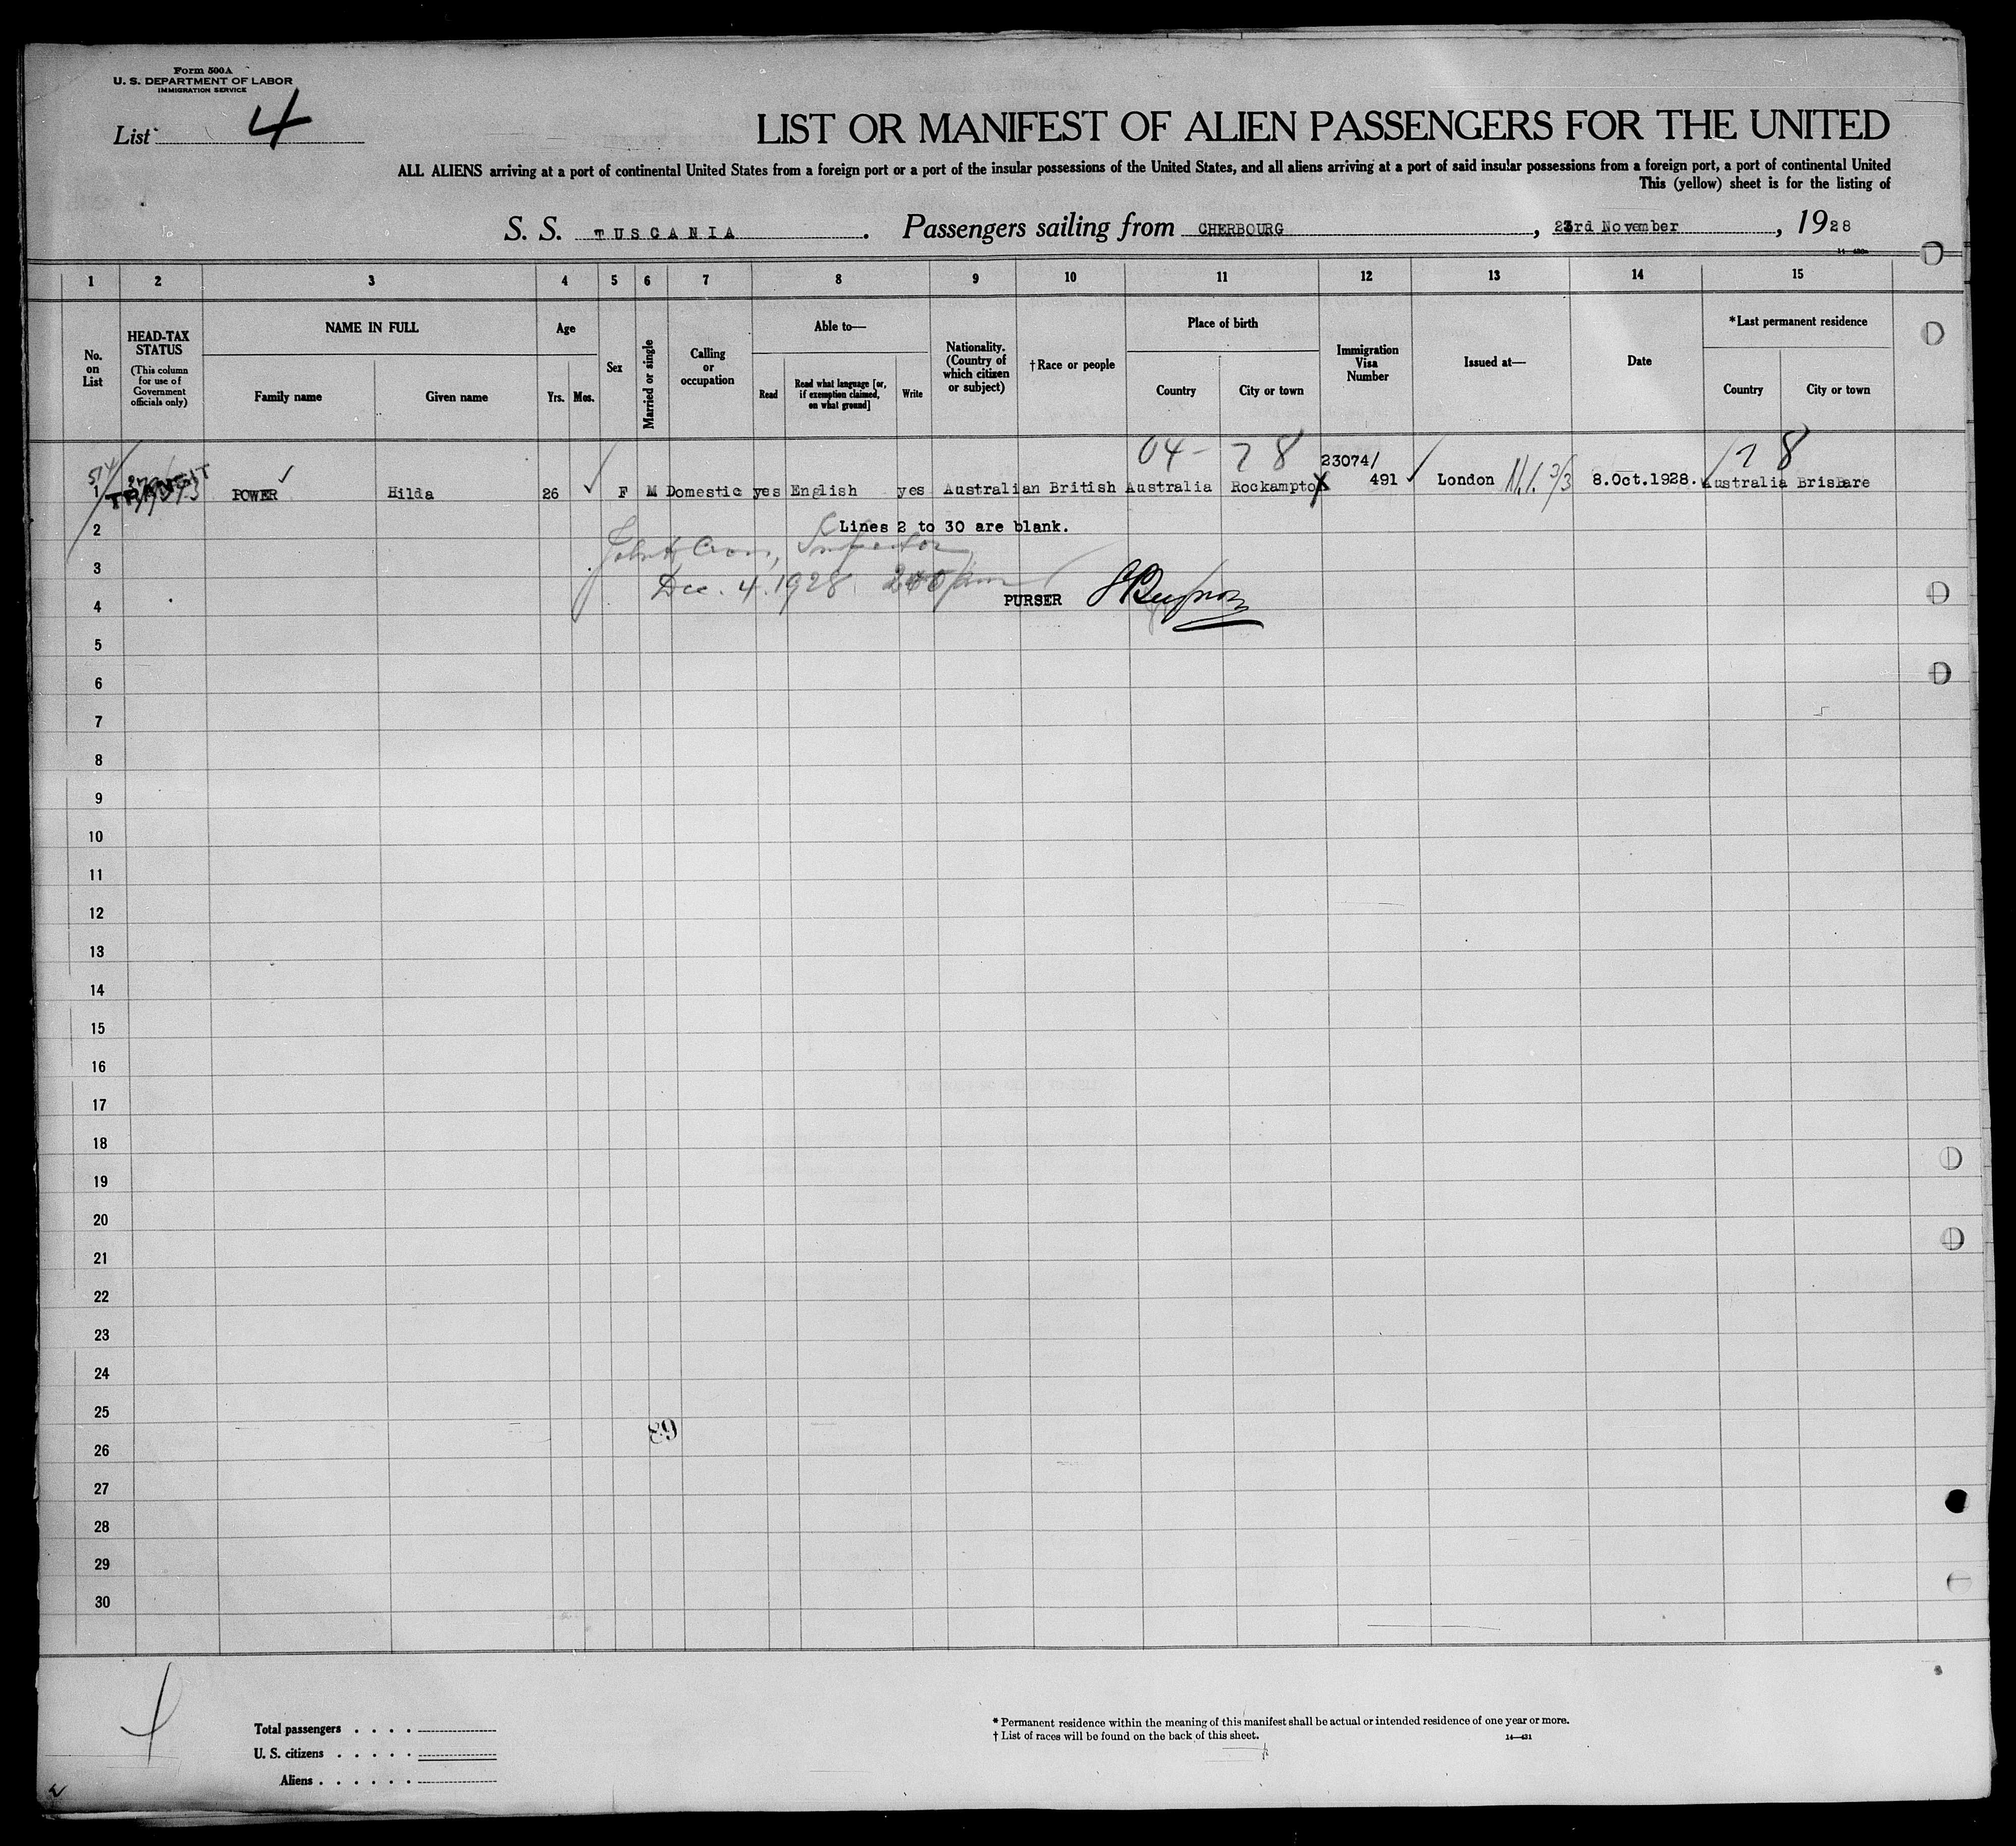 Form 500A
U. S. DEPARTMENT OF LABOR
IMMIGRATION SERVICE
List 4
LIST OR MANIFEST OF ALIEN PASSENGERS FOR THE UNITED
ALL ALIENS arriving at a port of continental United States from a foreign port or a port of the insular possessions of the United States, and all aliens arriving at a port of said insular possessions from a foreign port, a port of continental United
This (yellow) sheet is for the listing of
S. S. TUSCANIA. Passengers sailing from CHERBOURG, 23rd November, 1928
1 2 3 4 5 6 7 8 9 10 11 12 13 14 15
No. on List
HEAD-TAX STATUS
(This column for use of Government officials only)
NAME IN FULL
Family name
Given name
Age
Yrs.
Mos.
Sex
Married or single
Calling or occupation
Able to—
Read
Read what language [or, if exemption claimed, on what ground]
Write
Nationality. (Country of which citizen or subject)
†Race or people
Place of birth
Country
City or town
Immigration Visa Number
Issued at—
Date
*Last permanent residence
Country
City or town
04- 78 78
1 TRANSIT POWER Hilda 26 F M Domestic yes English yes Australian British Australia Rockampton 23074/ 491 London 8.Oct.1928. Australia Brisbare
2 Lines 2 to 30 are blank.
Inspector
3
Dec. 4. 1928
4 PURSER
5
6
7
8
9
10
11
12
13
14
15
16
17
18
19
20
21
22
23
24
25
89
26
27
28
29
30
Total passengers . . . .
U. S. citizens . . . . .
Aliens . . . . . .
* Permanent residence within the meaning of this manifest shall be actual or intended residence of one year or more.
† List of races will be found on the back of this sheet.
14—431